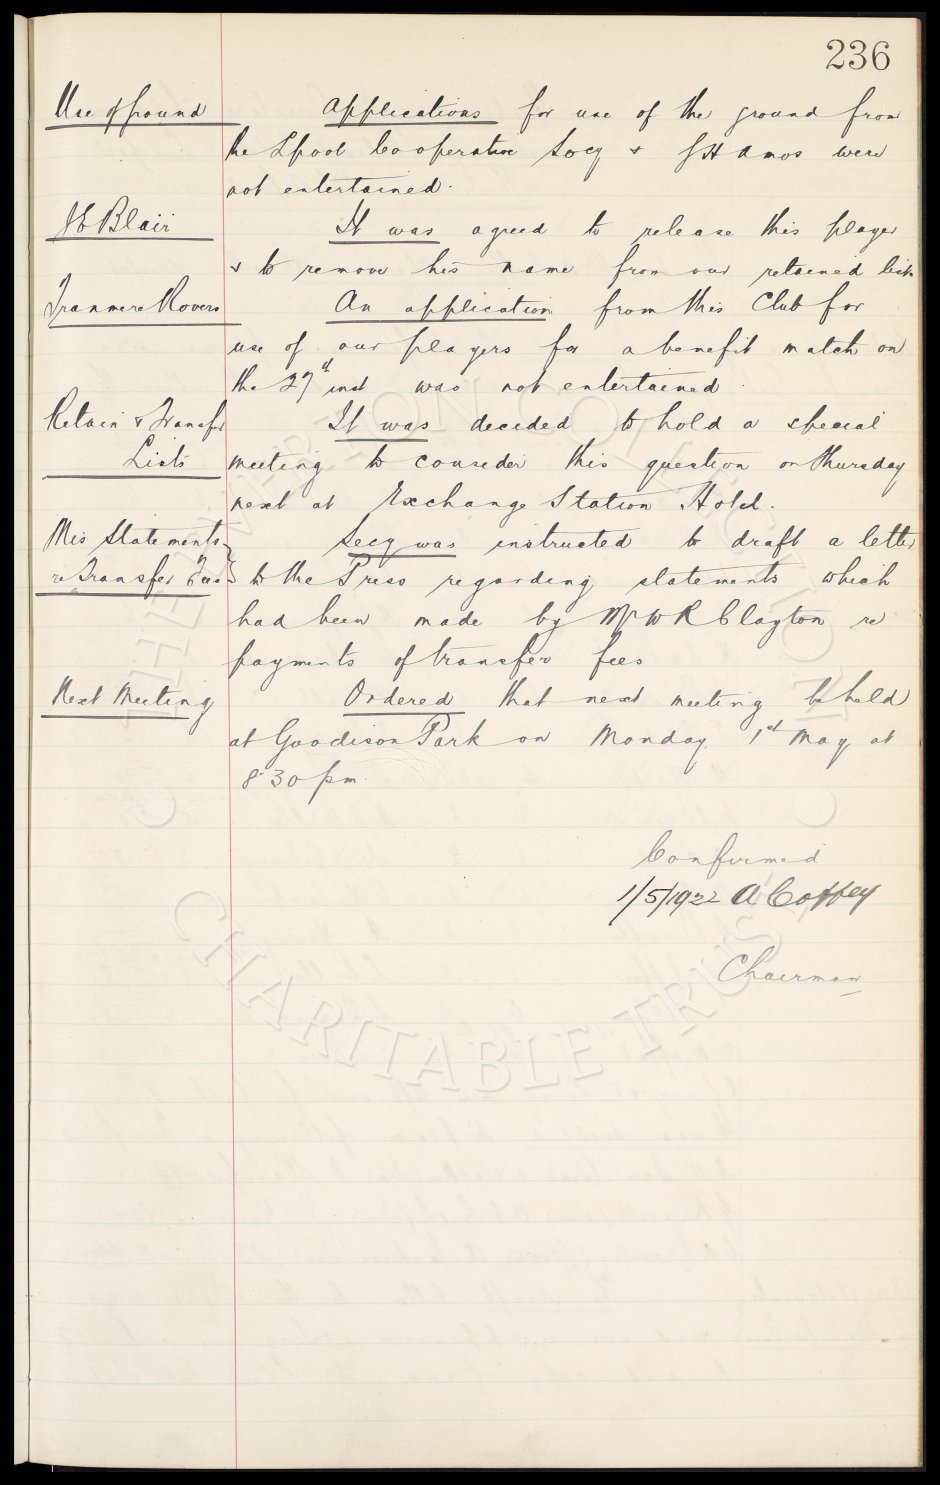 236
Use of Ground
Applications for use of the ground from
the Lpool Cooperative Socy & J H Amos were
not entertained.
J E Blair
It was agreed to release this player
& to remove his name from our retained list
Tranmere Rovers
An application from this Club for
use of our players for a benefit match on
the 27th inst was not entertained.
Retain & Transfer
Lists
It was decided to hold a special
meeting to consider this question on Thursday
next at Exchange Station Hotel.
Mis Statements
re Transfer Fees
Secy was instructed to draft a letter
to the Press regarding statements which
had been made by Mr W R Clayton re
payments of transfer fees
Next Meeting
Ordered that next meeting be held
at Goodison Park on Monday 1st May at
8.30 pm.
Confirmed
1/5/1922 A Coffey
Chairman
© THE EVERTON COLLECTION ©
CHARITABLE TRUST